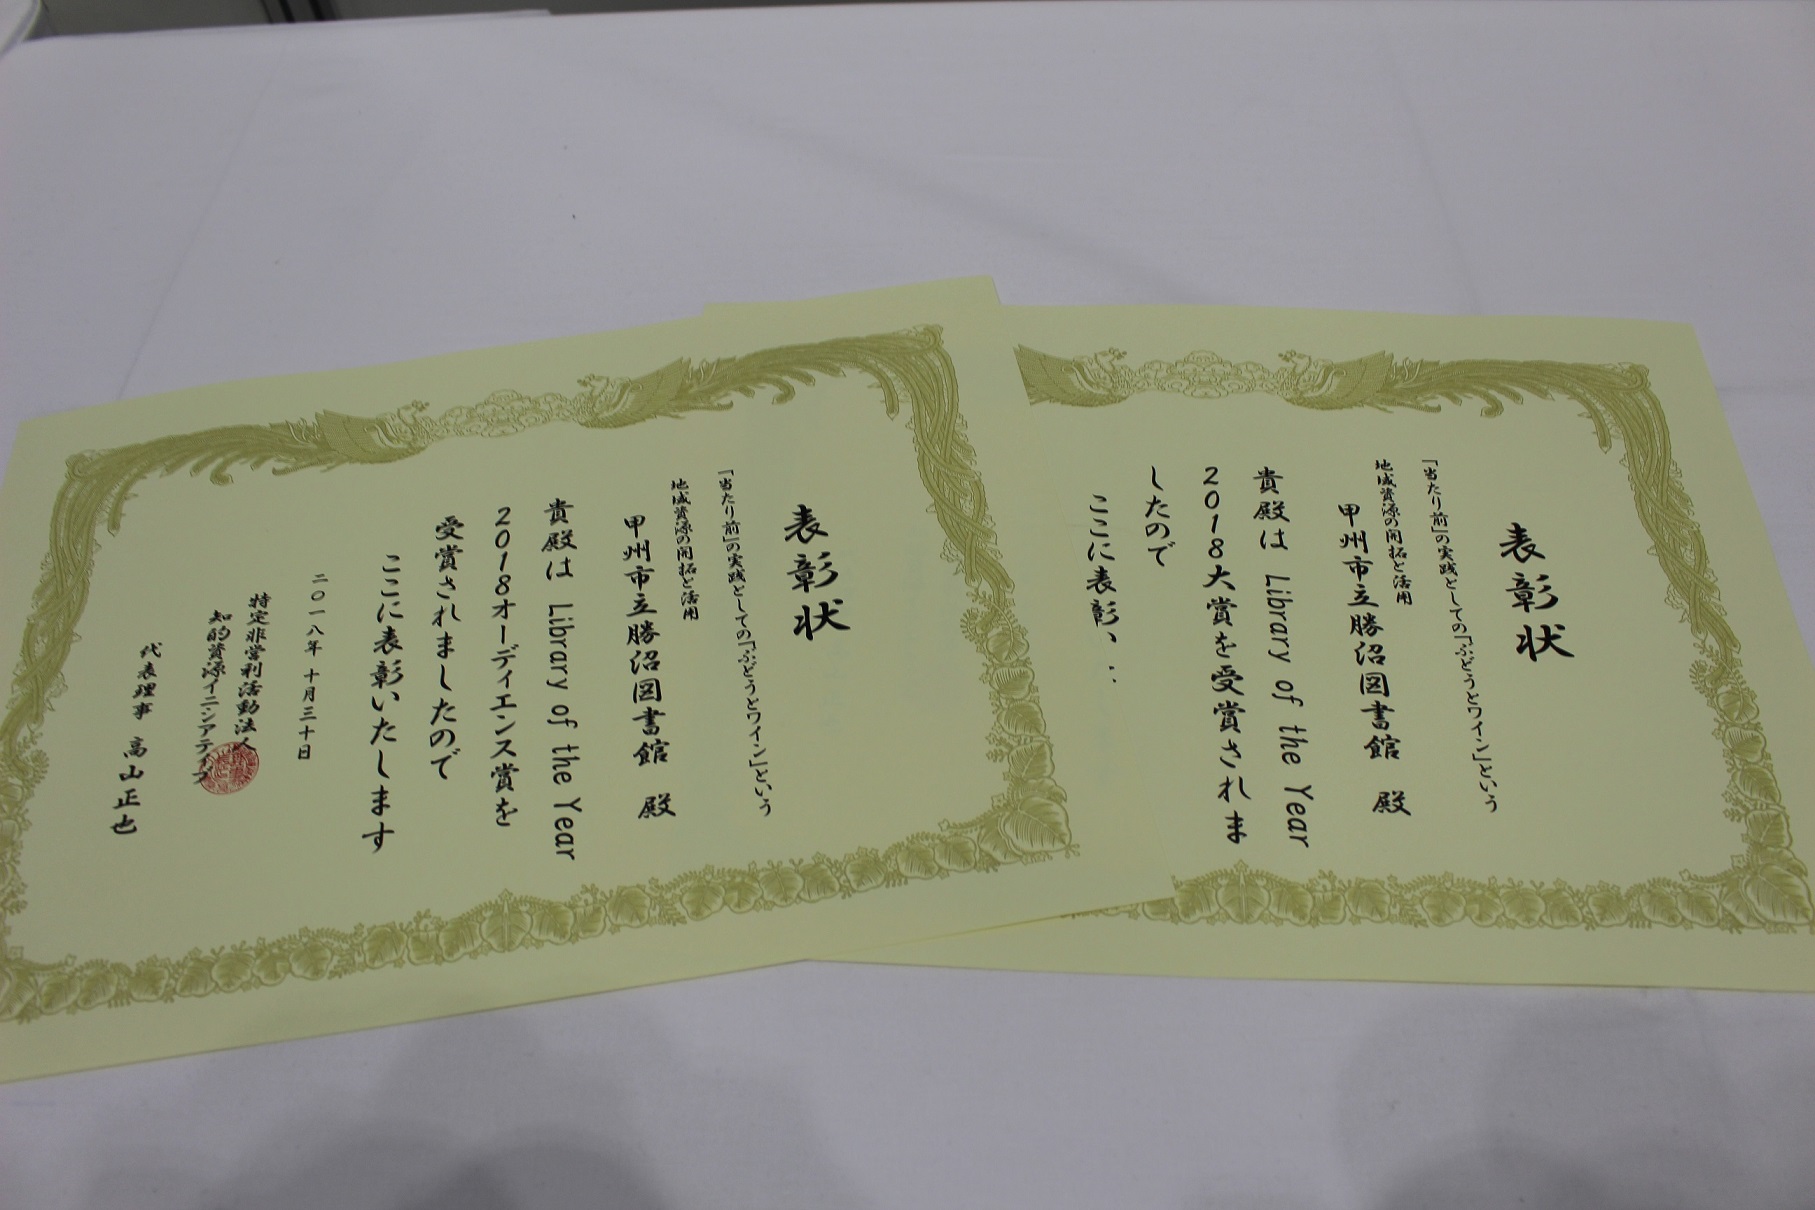 表彰状
「当たり前」の実践としての「ぶどうとワイン」という
地域資源の開拓と活用
甲州市立勝沼図書館 殿
貴殿は Library of the Year
2018大賞を受賞されま
したので
ここに表彰い
表彰状
「当たり前」の実践としての「ぶどうとワイン」という
地域資源の開拓と活用
甲州市立勝沼図書館 殿
貴殿は Library of the Year
2018オーディエンス賞を
受賞されましたので
ここに表彰いたします
二〇一八年 十月三十日
特定非営利活動法人
知的資源イニシアティブ
代表理事 高山正也